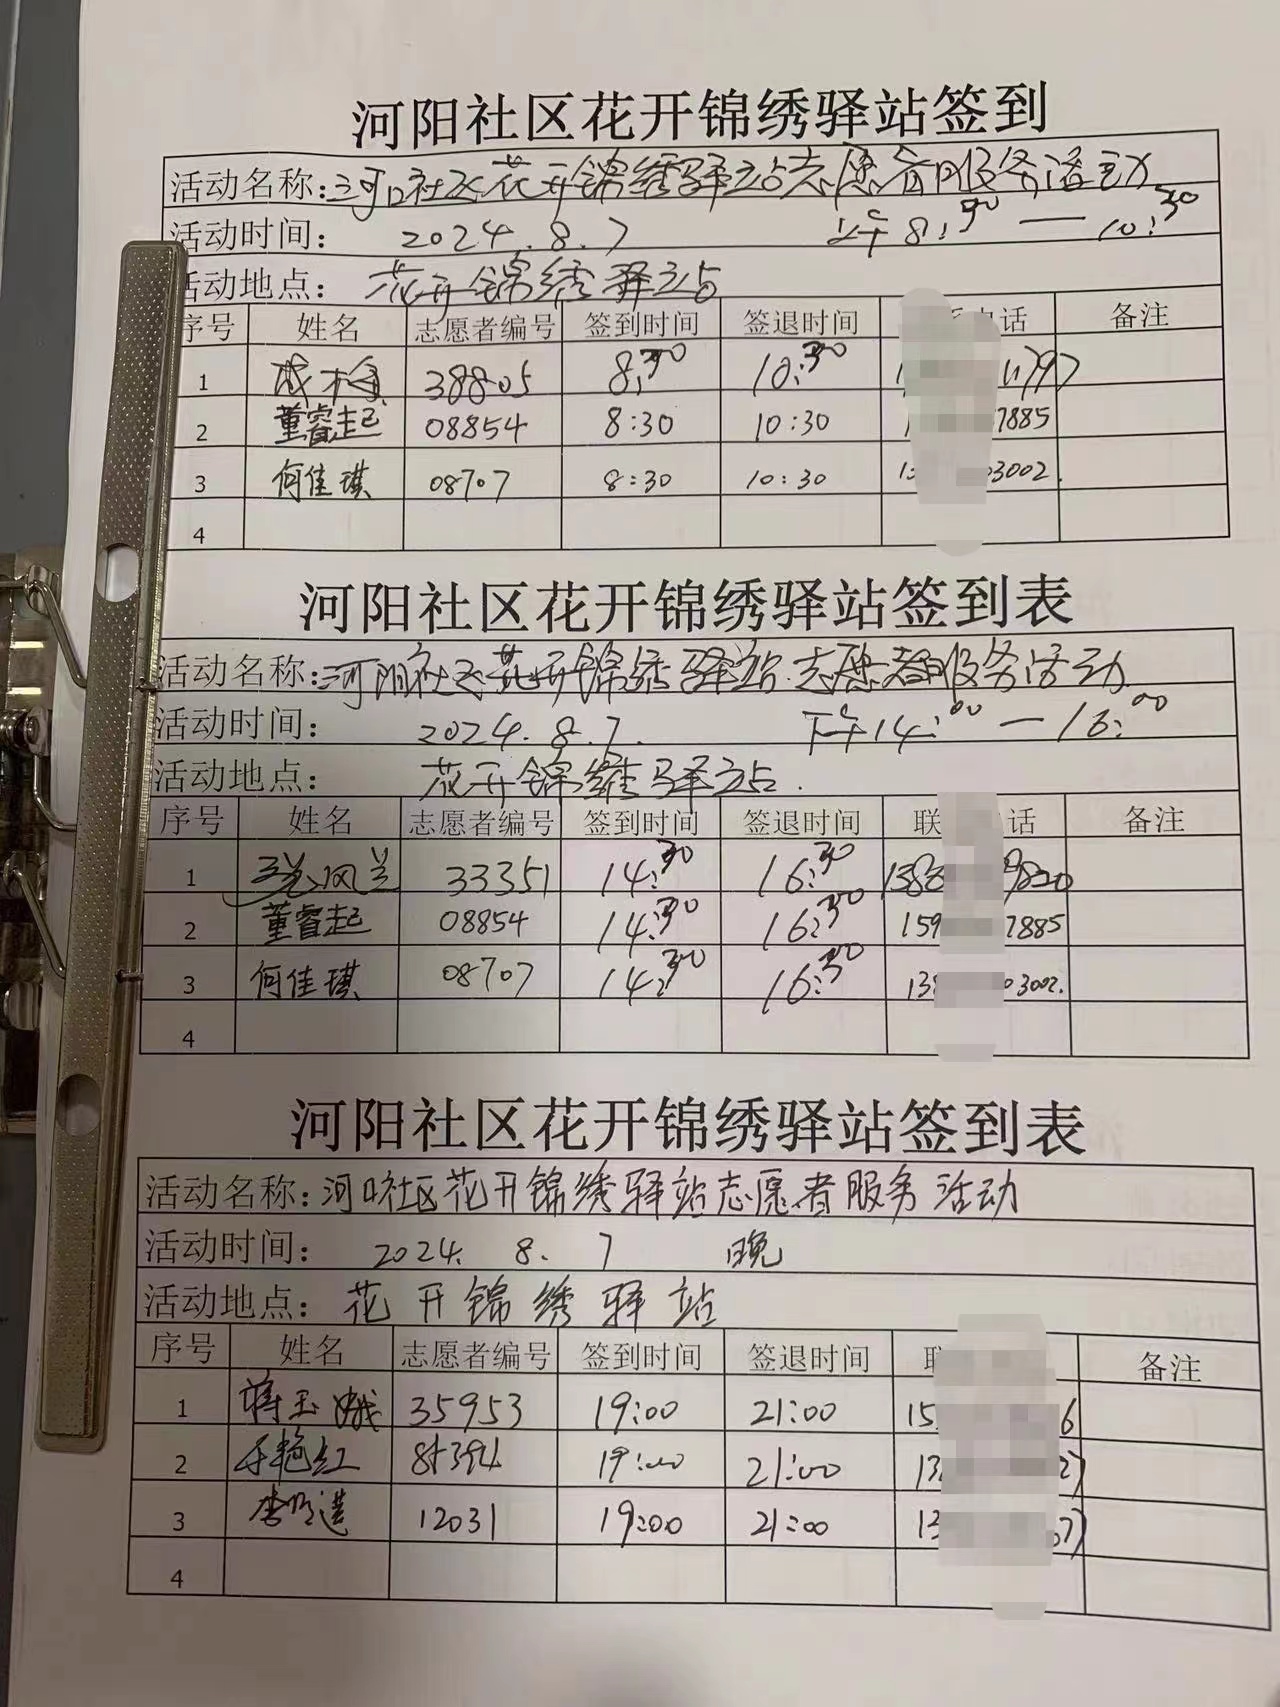 河阳社区花开锦绣驿站签到
活动名称:河口社区花开锦绣驿站志愿者服务活动
活动时间: 2024.8.7 上午8:30—10:30
活动地点: 花开锦绣驿站
序号 姓名 志愿者编号 签到时间 签退时间 话 备注
1 38805 8:30 10:30
2 董睿起 08854 8:30 10:30 7885
3 何佳琪 08707 8:30 10:30 13 3002.
4
河阳社区花开锦绣驿站签到表
活动名称:河阳社区花开锦绣驿站志愿者服务活动
活动时间: 2024.8.7. 下午14:00—16:00
活动地点: 花开锦绣驿站.
序号 姓名 志愿者编号 签到时间 签退时间 联 话 备注
1 33351 14:30 16:30 9820
2 董睿起 08854 14:30 16:30 159 7885
3 何佳琪 08707 14:30 16:30 13 3002.
4
河阳社区花开锦绣驿站签到表
活动名称:河口社区花开锦绣驿站志愿者服务活动
活动时间: 2024. 8. 7 晚
活动地点: 花开锦绣驿站
序号 姓名 志愿者编号 签到时间 签退时间 备注
1 蒋玉娥 35953 19:00 21:00 15 6
2 19:00 21:00 13
3 12031 19:00 21:00 13
4